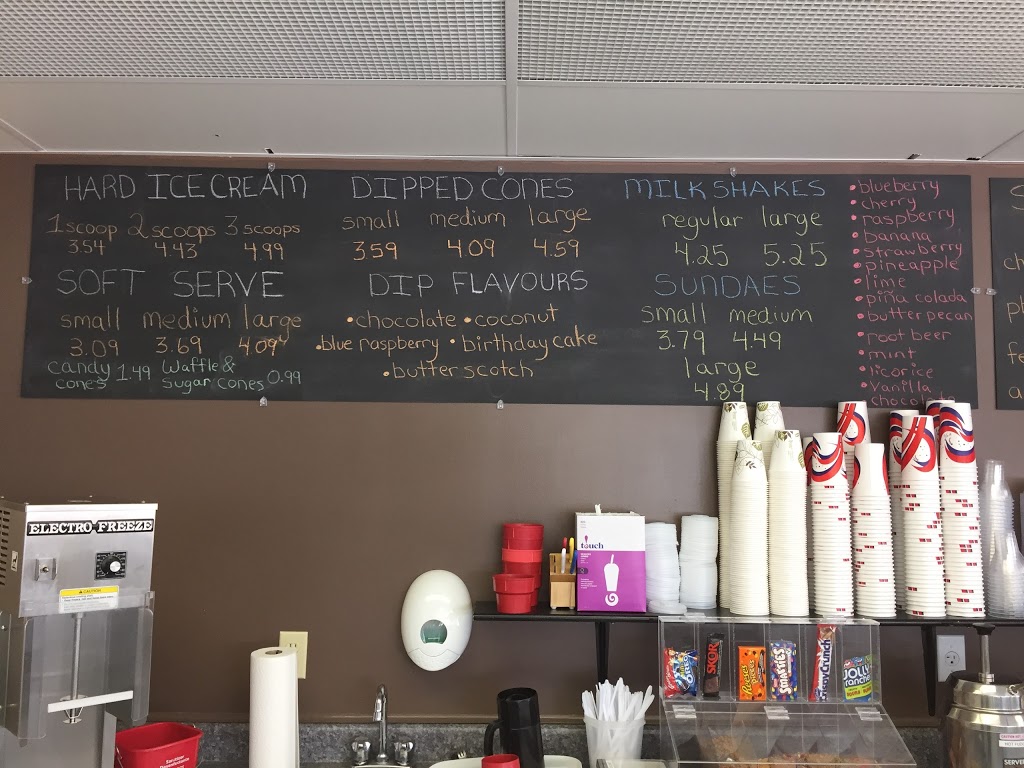 HARD ICE CREAM
1 scoop 2 scoops 3 scoops
3.54 4.43 4.99
SOFT SERVE
small medium large
3.09 3.69 4.09
candy cones 1.49 Waffle & Sugar cones 0.99
DIPPED CONES
small medium large
3.59 4.09 4.59
DIP FLAVOURS
•chocolate •coconut
•blue raspberry •birthday cake
•butterscotch
MILKSHAKES
regular large
4.25 5.25
SUNDAES
small medium
3.79 4.49
large
4.89
•blueberry
•cherry
•raspberry
•banana
•strawberry
•pineapple
•lime
•piña colada
•butter pecan
•root beer
•mint
•licorice
•vanilla
chocolate
ELECTRO FREEZE
CAUTION
touch
SKOR
Reese's
SMARTIES
Crunch
JOLLY
rancher